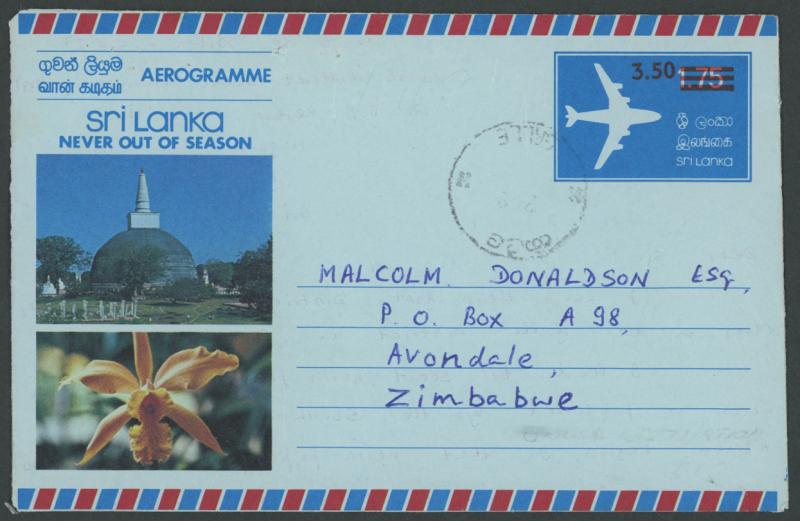 ගුවන් ලියුම
வான் கடிதம்
AEROGRAMME
SRI LANKA
NEVER OUT OF SEASON
3.50
1.75
ශ්‍රී ලංකා
இலங்கை
SRI LANKA
GALLE
MALCOLM. DONALDSON ESQ,
P. O. BOX A 98,
Avondale,
Zimbabwe